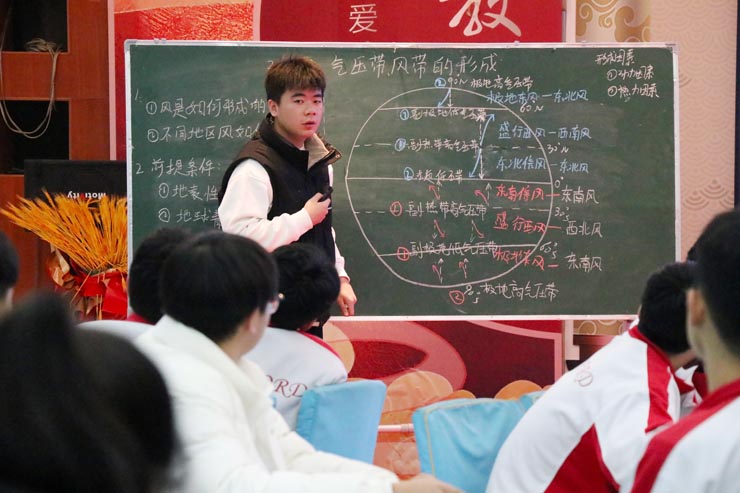 爱
教
气压带风带的形成
1.
①风是如何形成的
②不同地区风
2. 前提条件:
①地表
②地球
形成因素
①动力因素
②热力因素
② 90°N 极地高气压带
极地东风—东北风
①副极地低气压带
60°N
盛行西风—西南风
①副热带高气压带
30°N
东北信风—东北风
②赤道低压带
0°
东南信风—东南风
①副热带高气压带
30°s
盛行西风—西北风
①副极地低气压带
60°s
极地东风—东南风
② 90°s 极地高气压带
ORD